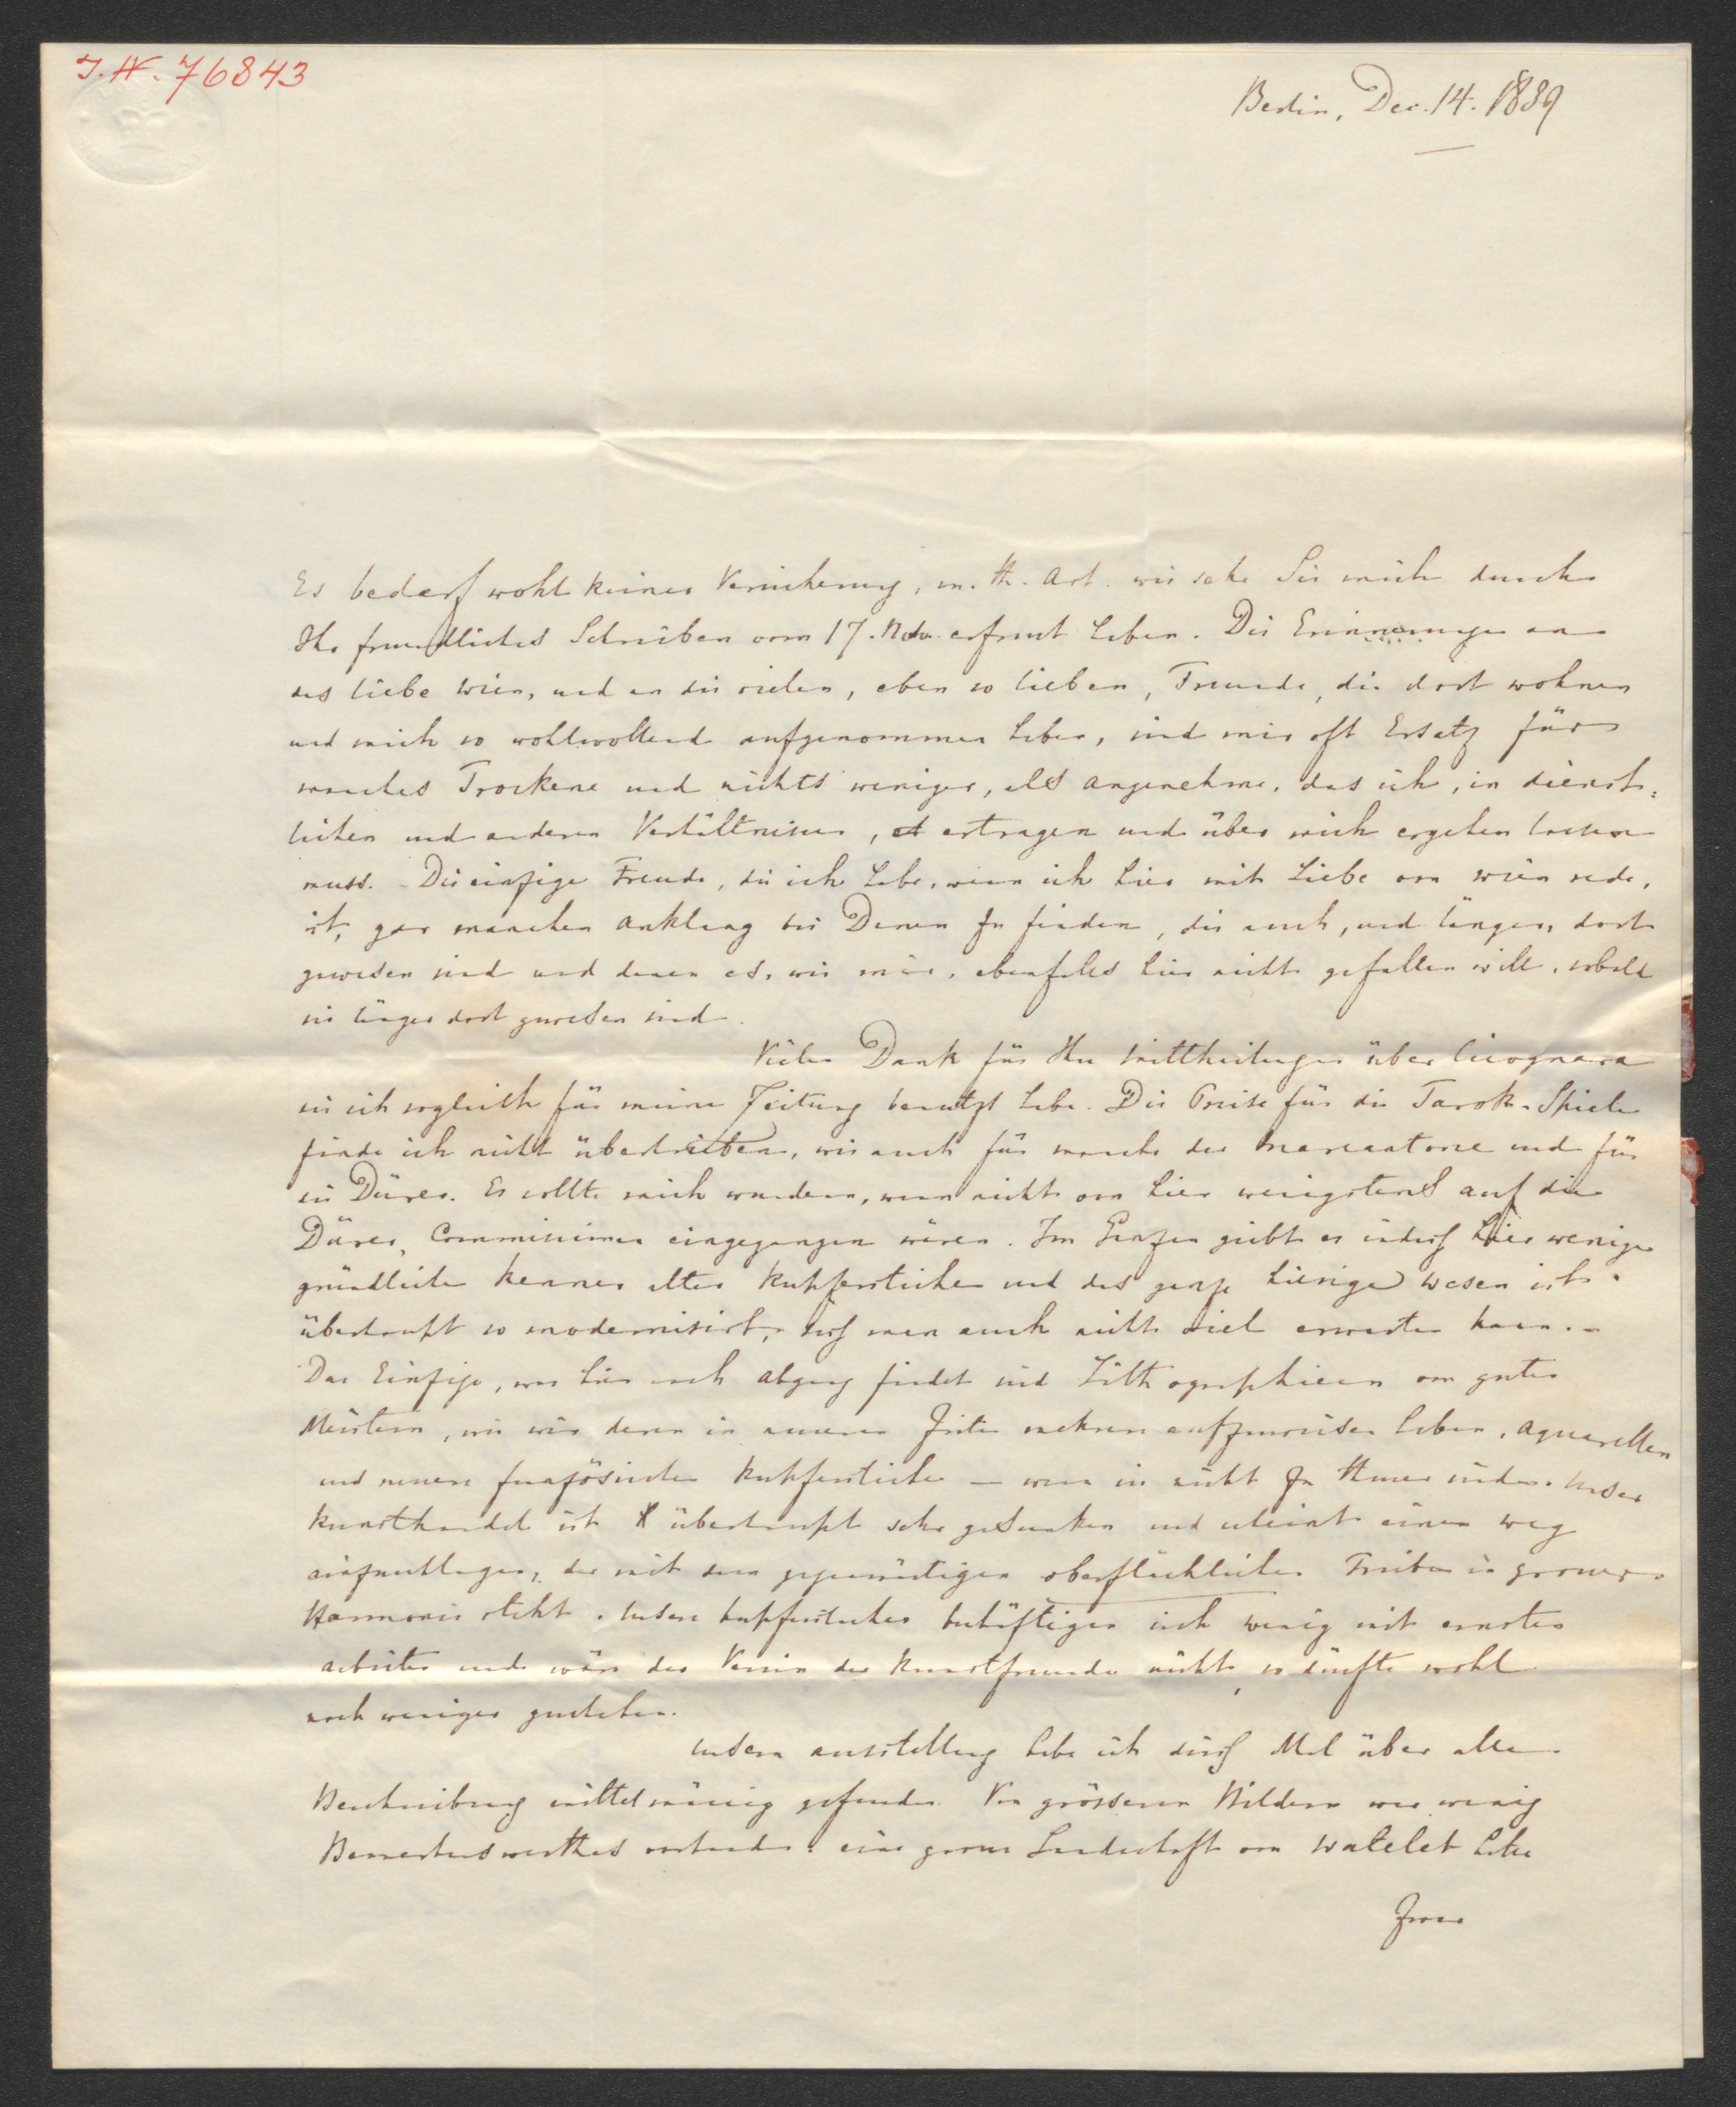 J. N. 76843
Berlin, Dec. 14. 1839
Es bedarf wohl keiner Versicherung, m. th. Art. wie sehr Sie mich durch
Ihr freundliches Schreiben vom 17. Nov. erfreut haben. Die Erinnerungen an
das liebe Wien, und an die vielen, eben so lieben, Freunde, die dort wohnen
und mich so wohlwollend aufgenommen haben, sind mir oft Ersatz für
manches Trockene und nichts weniger, als angenehme, das ich, in dienst-
lichen und anderen Verhältnissen, ertragen und über mich ergehen lassen
muss. – Die einzige Freude, die ich habe, wenn ich hier mit Liebe von Wien rede,
ist, gar manchen Anklang bei Denen zu finden, die auch, und länger, dort
gewesen sind und denen es, wie mir, ebenfalls hier nicht gefallen will, sobald
sie länger dort gewesen sind.
Vielen Dank für Ihre Mittheilungen über Cicognara
die ich sogleich für meine Zeitung benutzt habe. Die Preise für die Tarok-Spiele
finde ich nicht übertrieben, wie auch für manche der Marcantone und für
die Dürer. Es sollte mich wundern, wenn nicht von hier wenigstens auf die
Dürer, Commissionen eingegangen wären. Im Ganzen giebt es indess hier wenige
gründliche Kenner alter Kupferstiche und das ganze hiesige Wesen ist
überhaupt so modernisirt, dass man auch nicht viel erwarten kann. –
Das Einzige, was hier noch Abgang findet sind Lithographieen von guten
Meistern, wie wir deren in neuerer Zeit mehrere aufzuweisen haben, Aquarellen
und neuere französische Kupferstiche – wenn sie nicht zu theuer sind. Unser
Kunsthandel ist überhaupt sehr gesunken und scheint einen Weg
einzuschlagen, der mit dem gegenwärtigen oberflächlichen Treiben in grosser
Harmonie steht. Unsere Kupferstecher beschäftigen sich wenig mit ernsten
Arbeiten und wäre der Verein der Kunstfreunde nicht, so dürfte wohl
noch weniger geschehen.
Unsere Ausstellung habe ich dies Mal über alle
Beschreibung mittelmässig gefunden. Von grösseren Bildern war wenig
Bemerkenswerthes vorhanden: eine grosse Landschaft von Watelet hatte
zwar